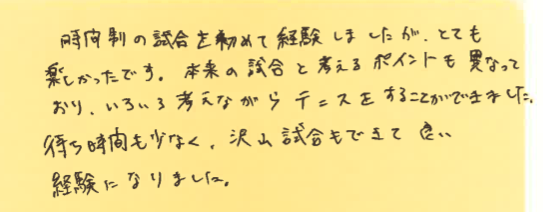 時間制の試合を初めて経験しましたが、とても
楽しかったです。本来の試合と考えるポイントも異なって
おり、いろいろ考えながらテニスをすることができました。
待ち時間も少なく、沢山試合もできて良い
経験になりました。